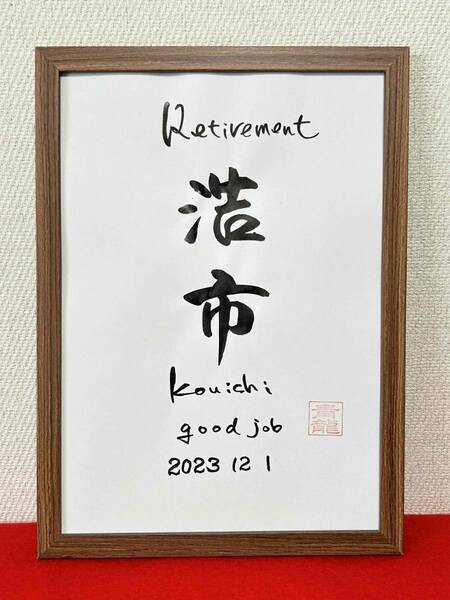 Retirement
浩
市
Kouichi
good job
2023 12 1
青龍